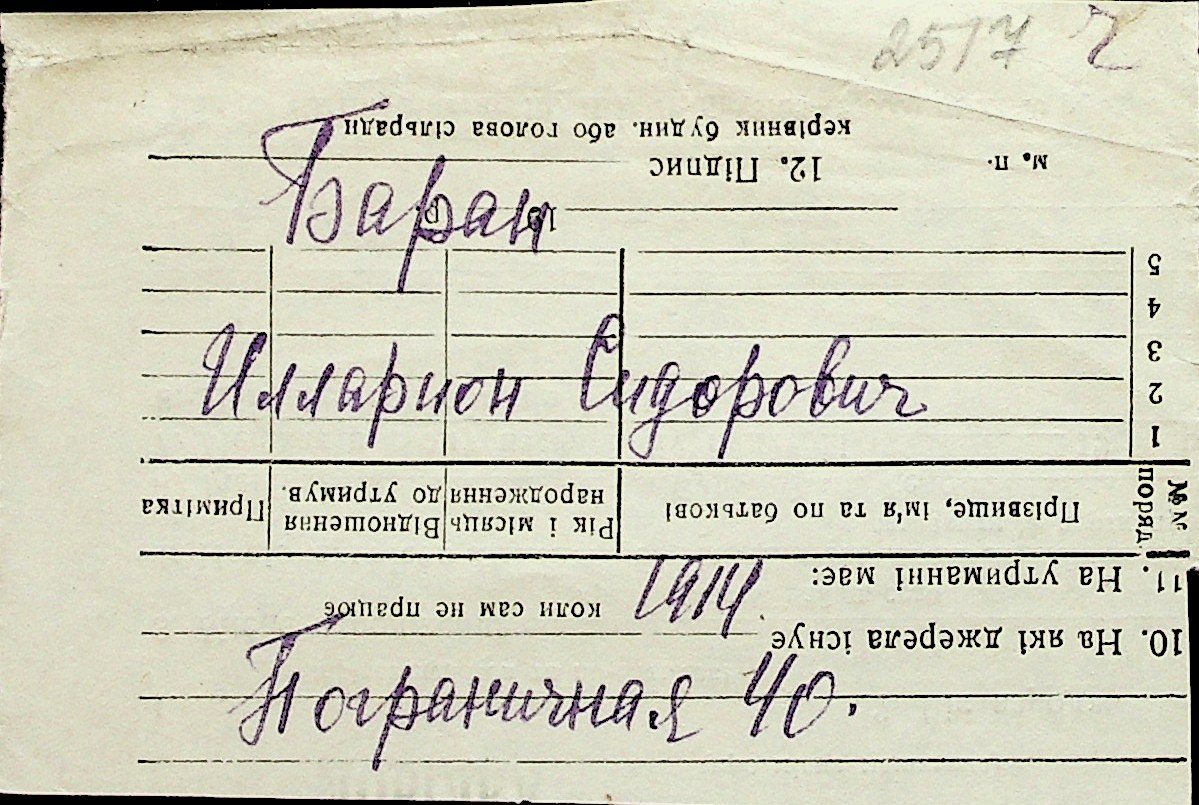 2517 г
Баран
Илларион Сидорович
1914.
Пограничная 40.
10. На які джерела існує
коли сам не працює
11. На утриманні має:
№№ поряд.
Прізвище, ім'я та по батькові
Рік і місяць народження
Відношення до утримув.
Примітка
1
2
3
4
5
19 р.
м. п.
12. Підпис
керівник будин. або голова сільради